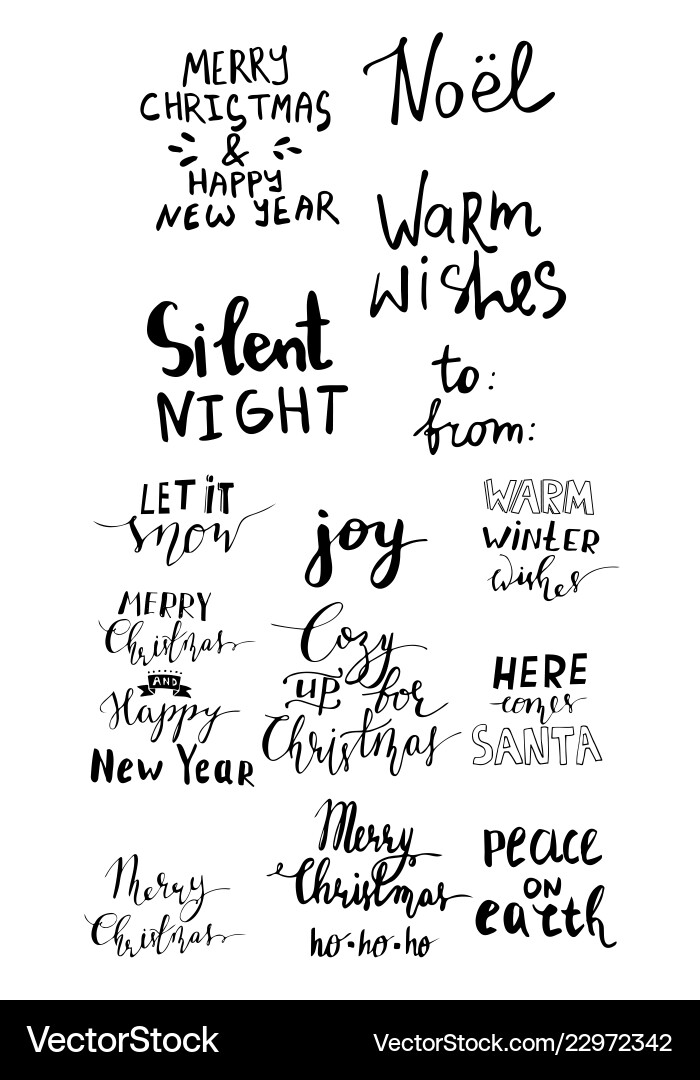 MERRY
CHRISTMAS
&
HAPPY
NEW YEAR
Noël
Warm
wishes
Silent
NIGHT
to:
from:
LET iT
snow
joy
WARM
WiNtER
wishes
MERRY
Christmas
AND
Happy
New Year
Cozy
up for
Christmas
HERE
comes
SANTA
Merry
Christmas
Merry
Christmas
ho•ho•ho
peace
ON
earth
VectorStock®
VectorStock.com/22972342